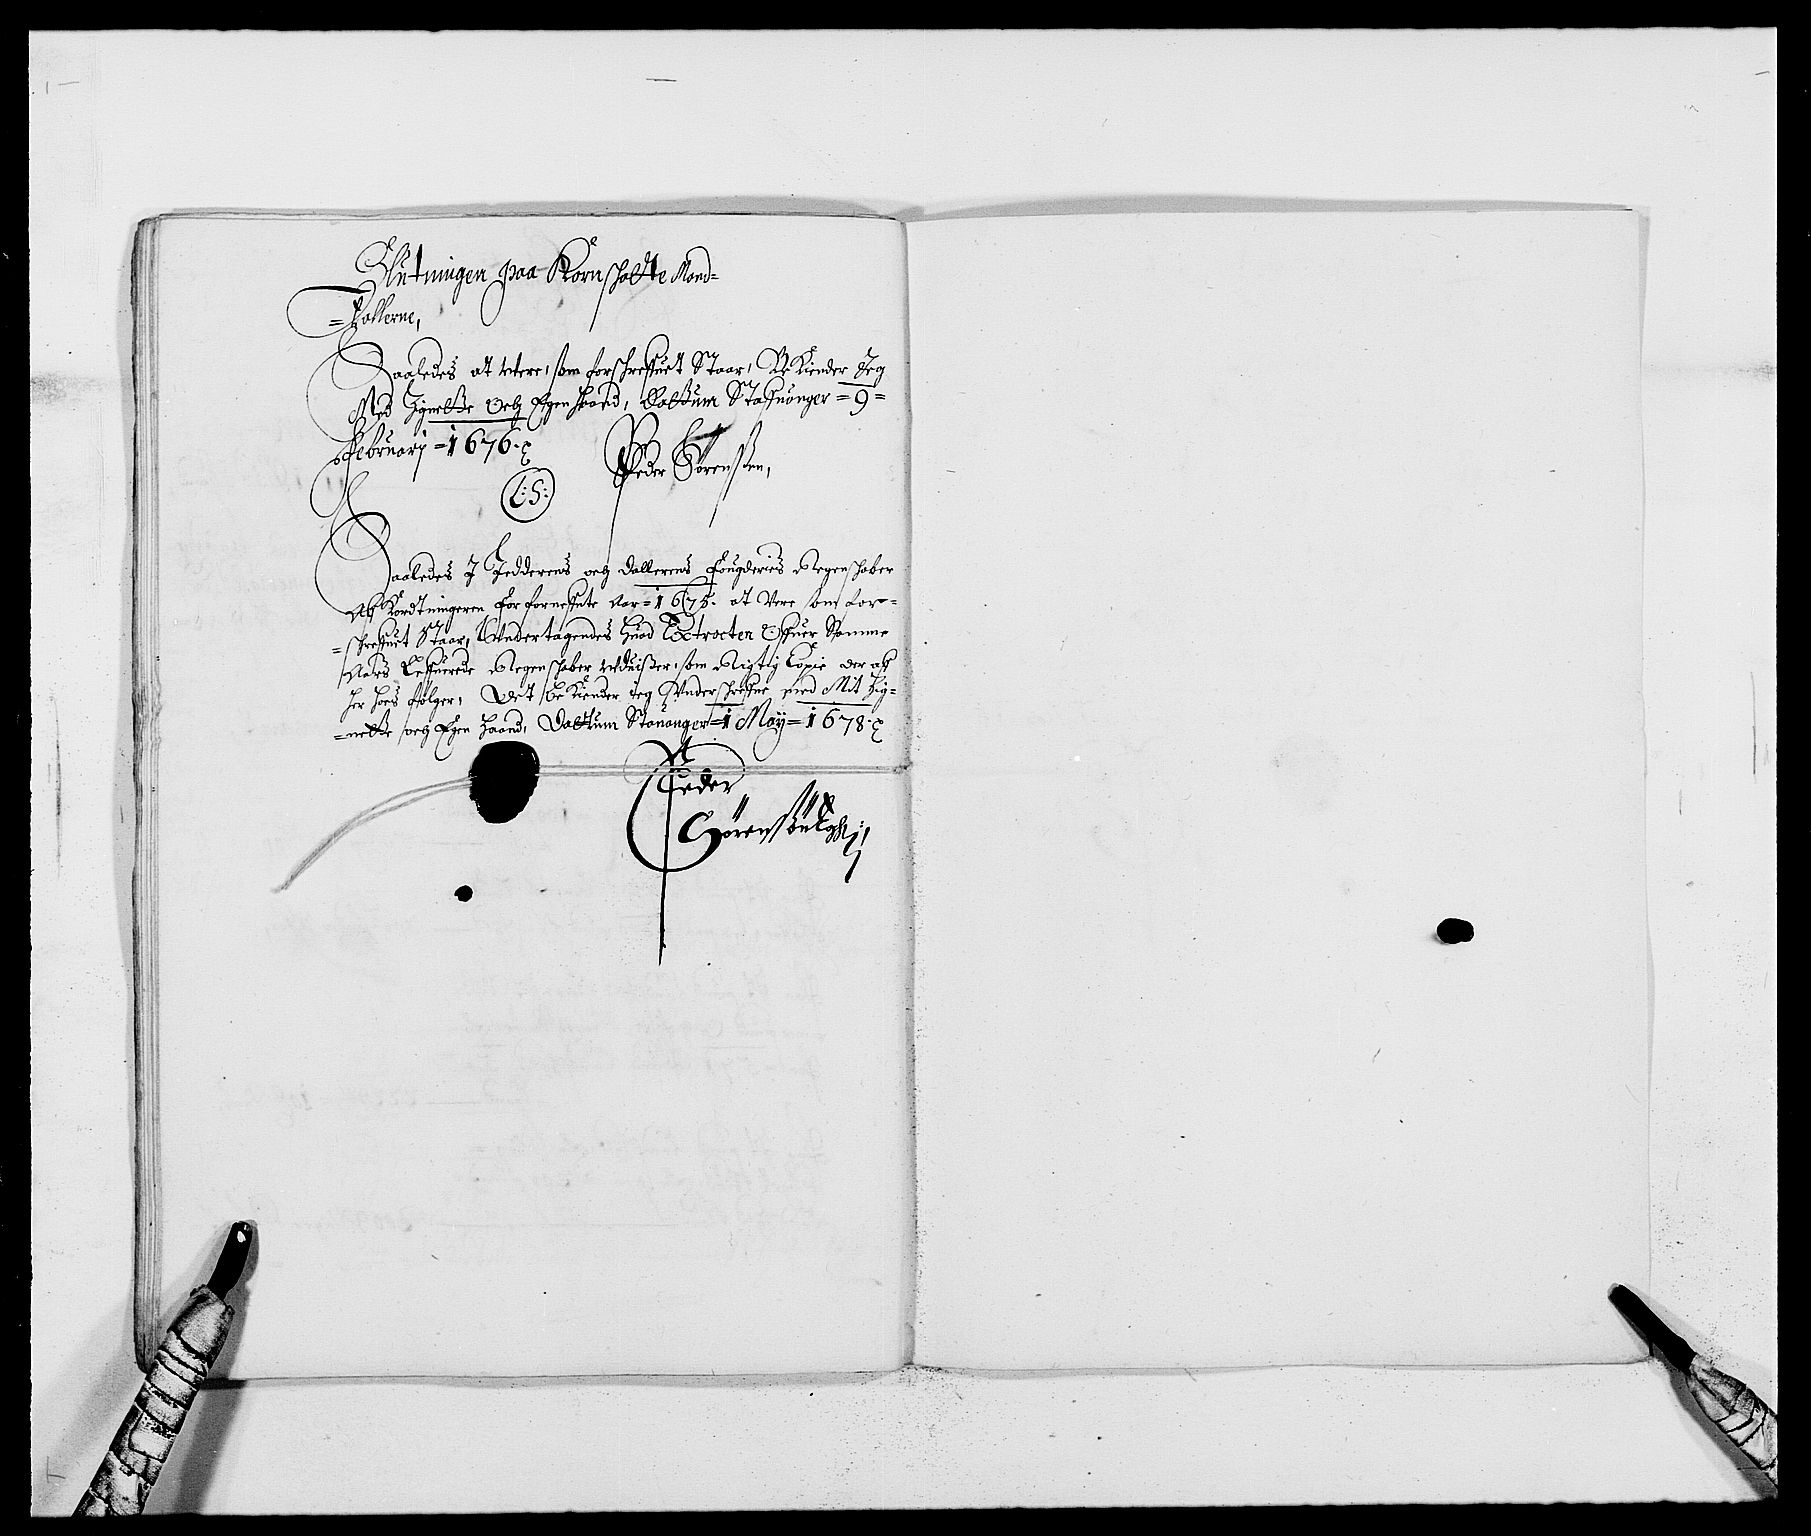 Slutningen paa Kornskatte Mand=
=tallerne,
Saaledes at were, som forschreffuet Staar, Bekiender Jeg
Med Zignette Och Egen Haand, Dattum Staffuanger =9=
Februarj =1676.
Peder Sörenssen,
L:S:
Saaledes J Jedderens och Dallerens Fougderies Regenskaber
Aff Kordtningeren For forneffnte Aar =1675. at Vere som for=
=schreffuet Staar, Undertagendes Huad Extracten Offuer Samme
Aars Leffuerede Regenskaber Uduißer, som Rigtig Copie der aff
her hoes følger, Det bekiender Jeg Underschreffne med Mit Zig=
=nette och Egen Haand, Dattum Stauanger =1 May= 1678.
Peder
Sörenssön